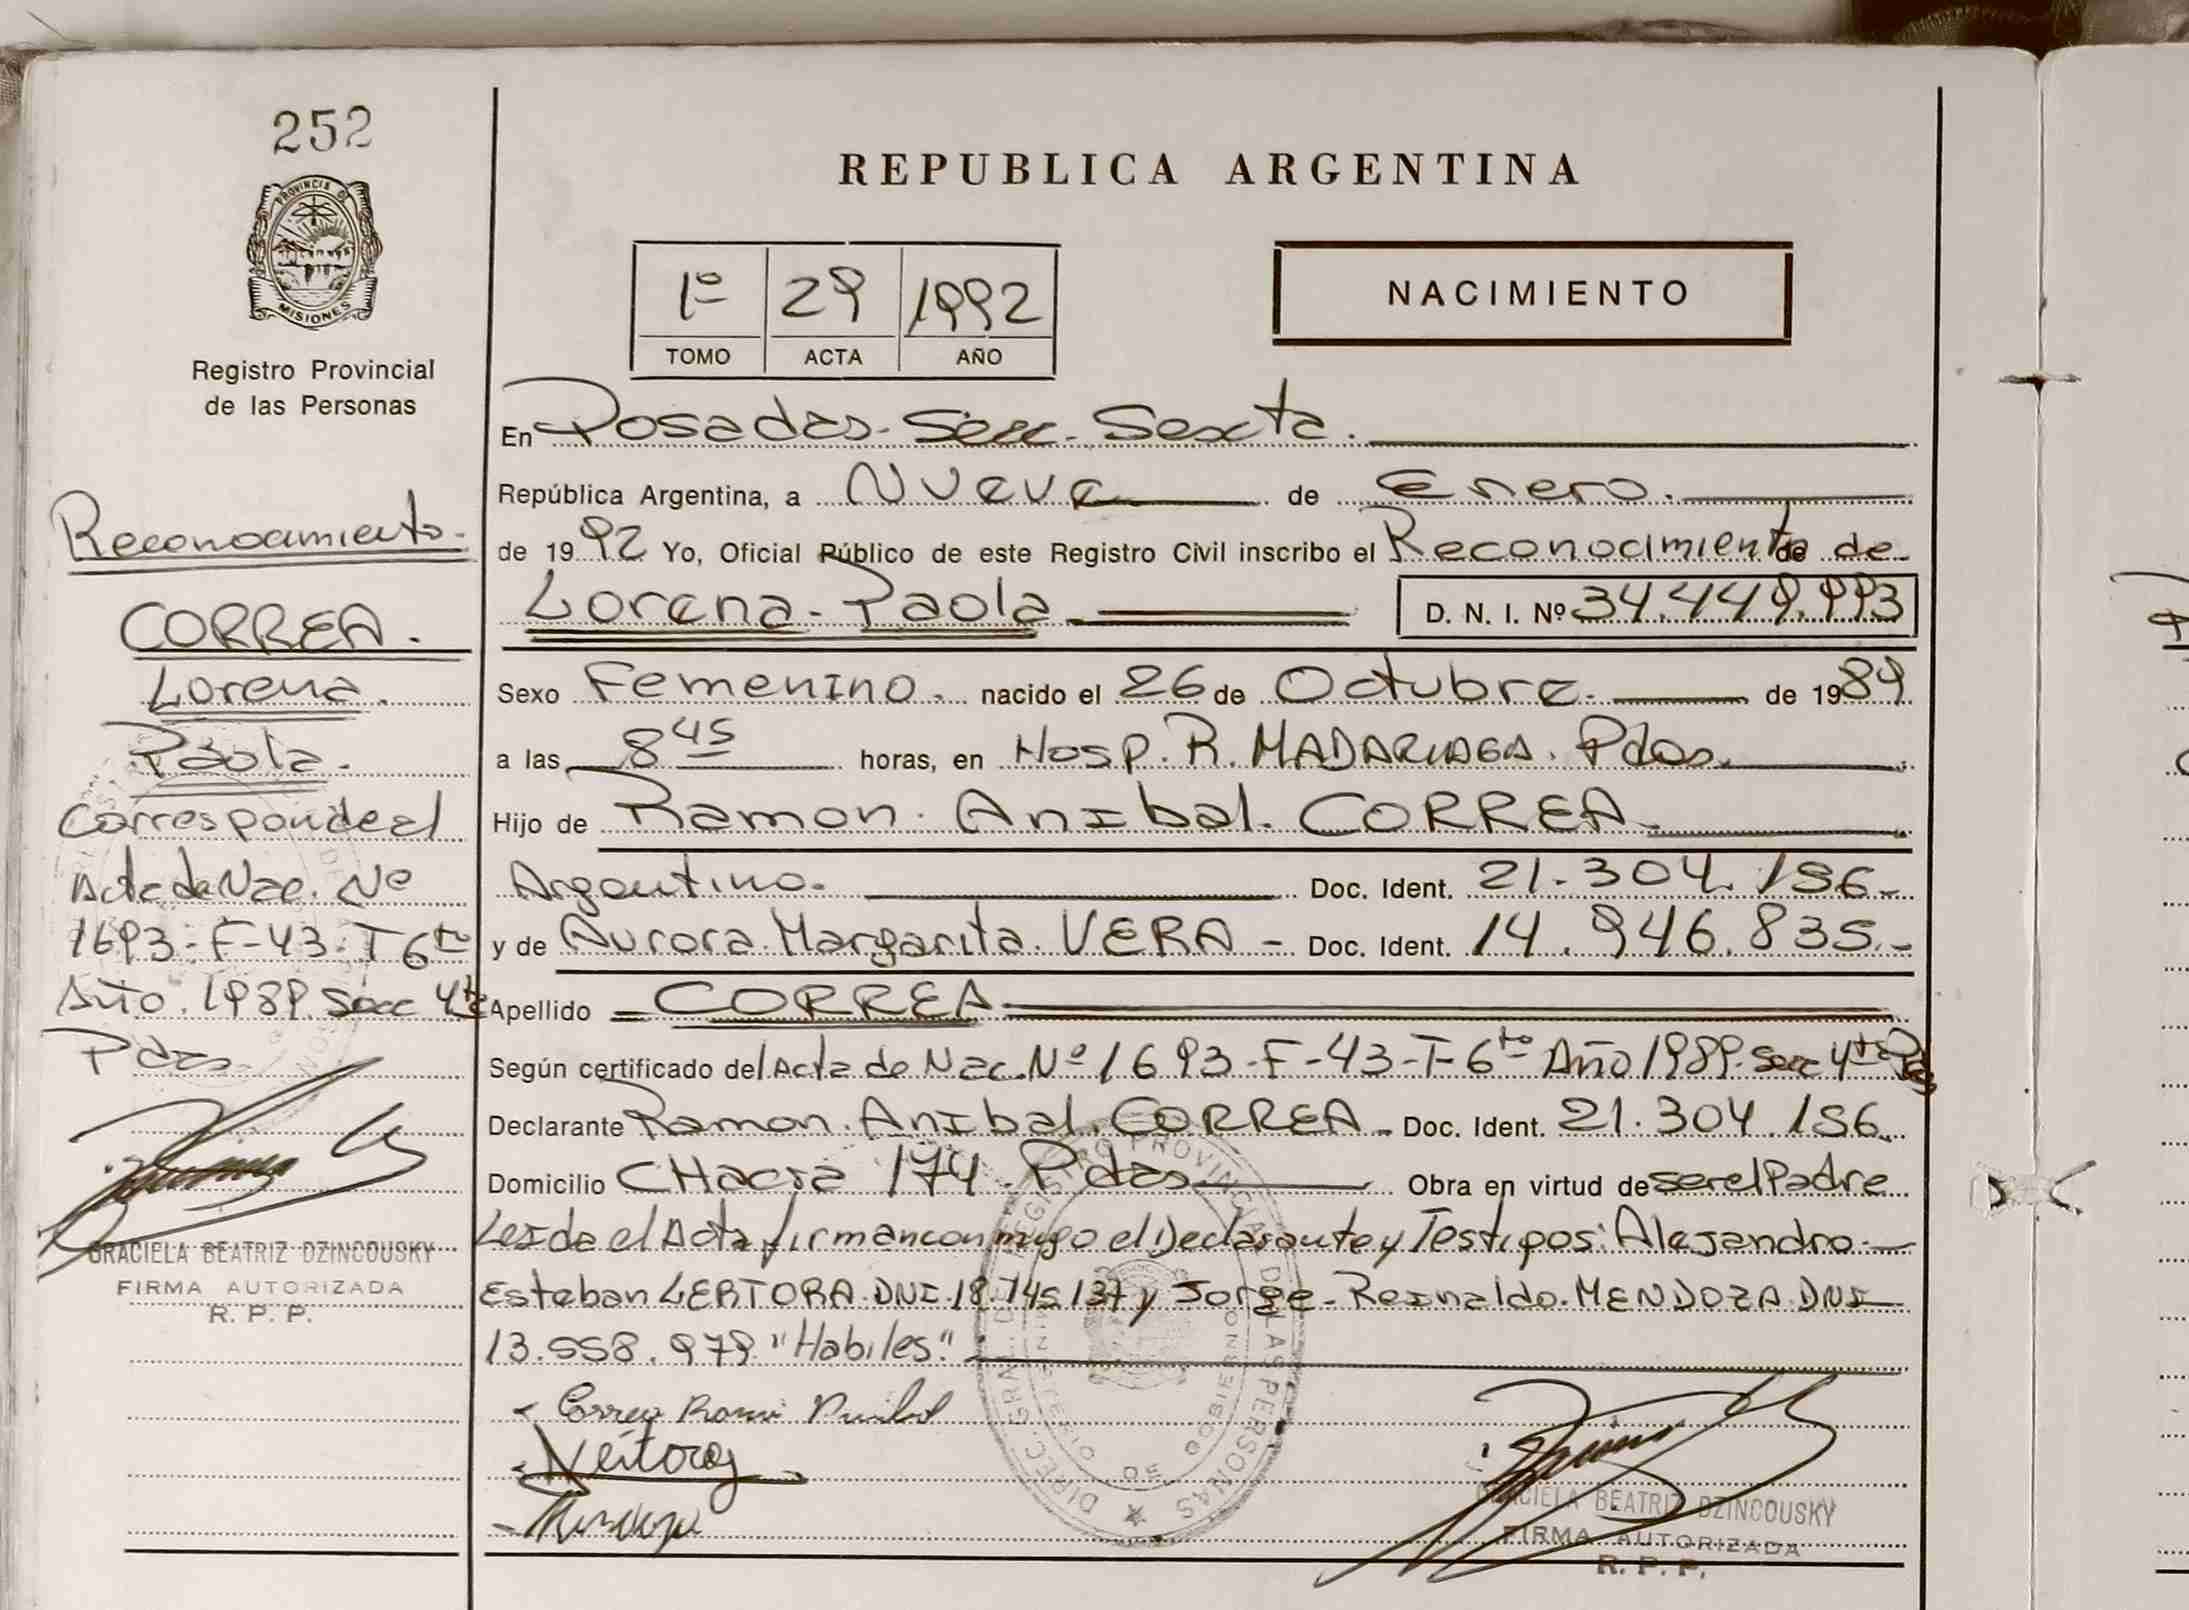 252
PROVINCIA DE
MISIONES
Registro Provincial
de las Personas
Reconocimiento.
CORREA.
Lorena.
Paola.
Corresponde al
Acta de Nac. Nº
1693-F-43-T 6to
Año. 1989. Secc 4ta
Pdas.
GRACIELA BEATRIZ DZINCOUSKY
FIRMA AUTORIZADA
R. P. P.
REPUBLICA ARGENTINA
1º 29 1992
TOMO ACTA AÑO
NACIMIENTO
En Posadas. Secc. Sexta.
República Argentina, a Nueve de Enero.
de 1992 Yo, Oficial Público de este Registro Civil inscribo el Reconocimiento de
Lorena-Paola D. N. I. Nº 34.449.993
Sexo Femenino. nacido el 26 de Octubre. de 1989
a las 8 45 horas, en Hosp. R. MADARIAGA. Pdas.
Hijo de Ramon. Anibal. CORREA.
Argentino. Doc. Ident. 21.304.156.-
y de Aurora. Margarita. VERA - Doc. Ident. 14.946.835.-
Apellido CORREA
Según certificado del Acta de Nac. Nº 1693-F-43-T-6to Año 1989. Secc 4ta Pdas
Declarante Ramon. Anibal. CORREA. Doc. Ident. 21.304.156.
Domicilio CHacra 174. Pdas Obra en virtud de ser el Padre
Leida el Acta firman conmigo el Declarante y Testigos: Alejandro
Esteban LERTORA. DNI. 18.745137 y Jorge-Reinaldo. MENDOZA. DNI
13.558.979 "Habiles".
Correa Ramon Anibal
Mendoza
DIREC. GRAL. DEL REGISTRO PROVINCIAL DE LAS PERSONAS
MINISTERIO DE GOBIERNO
GRACIELA BEATRIZ DZINCOUSKY
FIRMA AUTORIZADA
R. P. P.